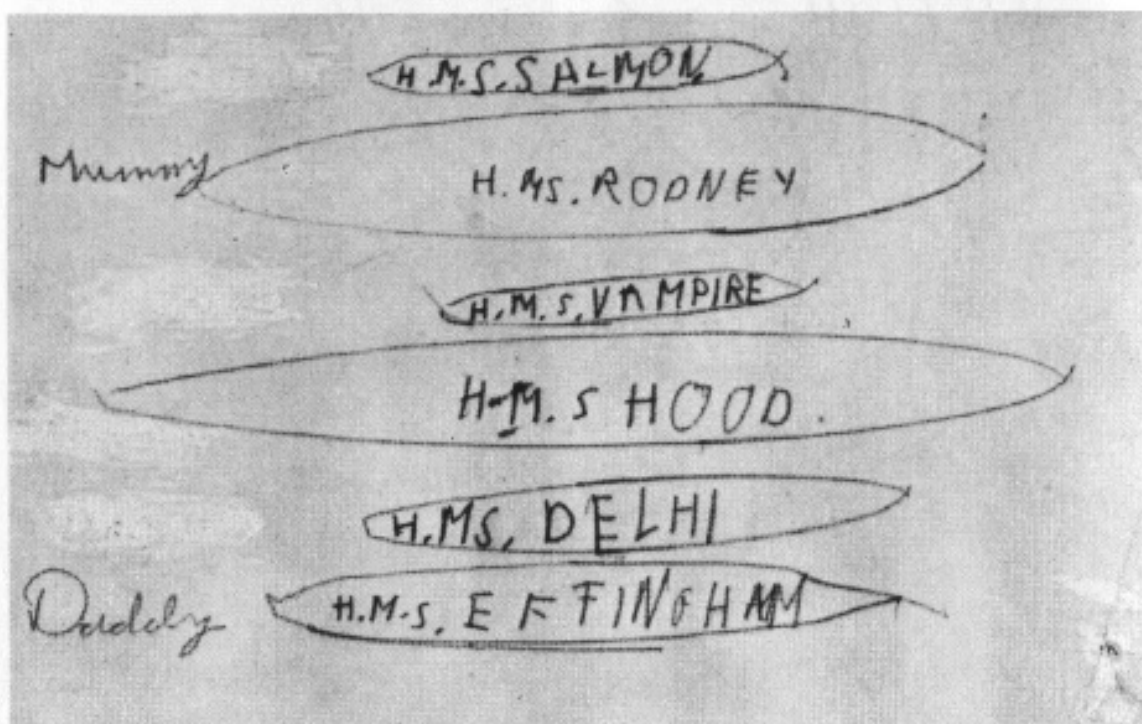 H.M.S. SALMON
Mummy
H.MS. RODNEY
H.M.S. VAMPIRE
H.M.S HOOD.
H.MS. DELHI
Daddy
H.M.S. EFFINGHAM